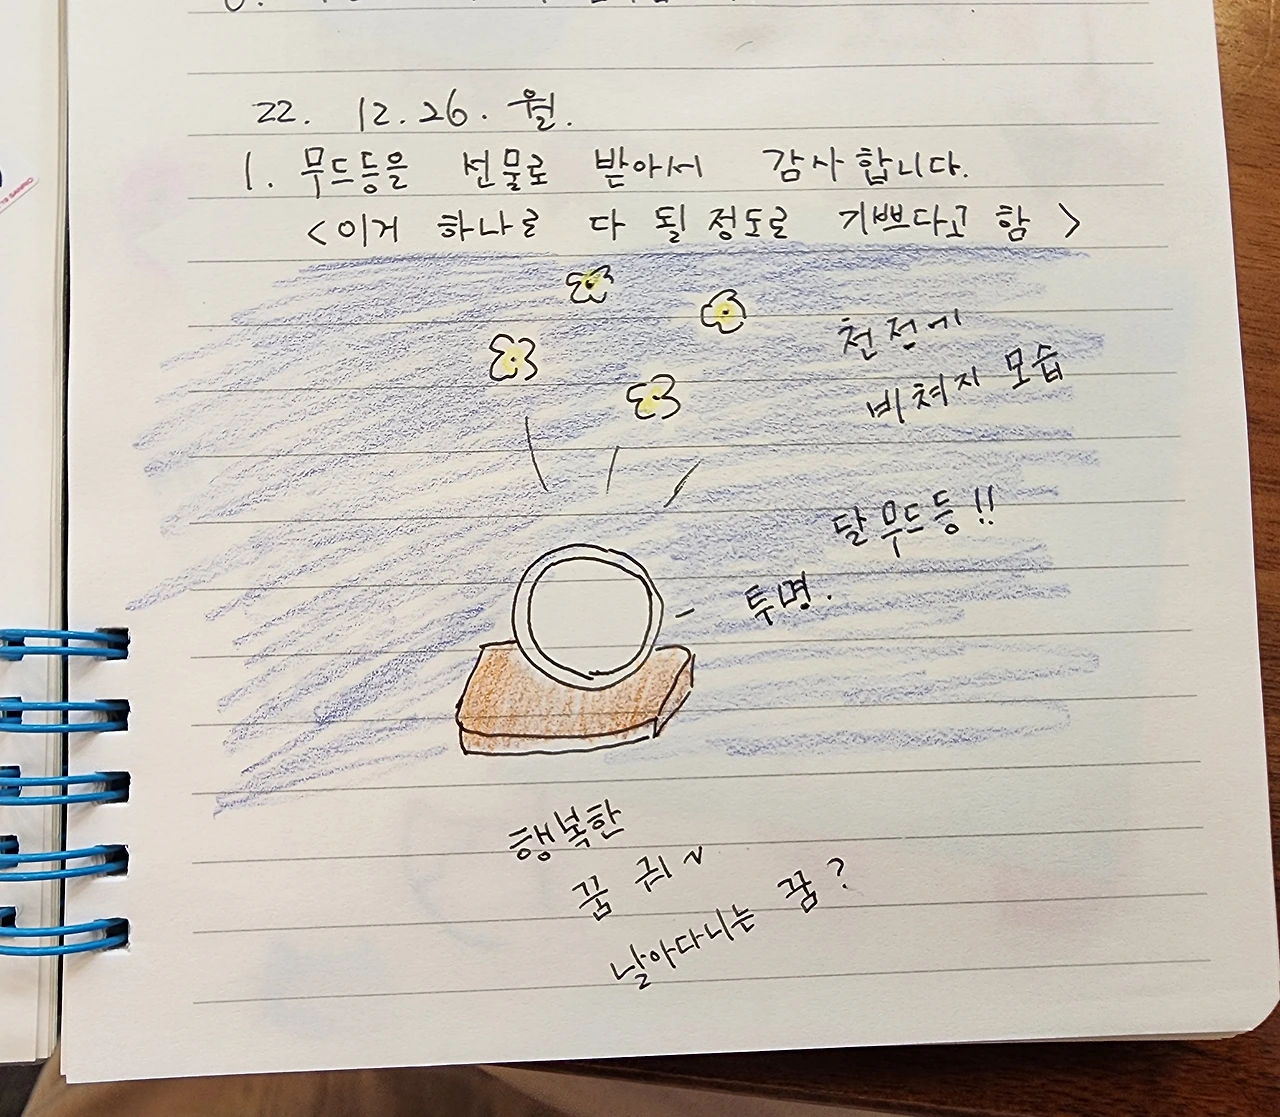 22. 12.26. 월.
1. 무드등을 선물로 받아서 감사합니다.
<이거 하나로 다 될 정도로 기쁘다고 함>
천전에
비쳐지 모습
달 무드등!!
투명.
행복한
꿈 꿔~
날아다니는 꿈?